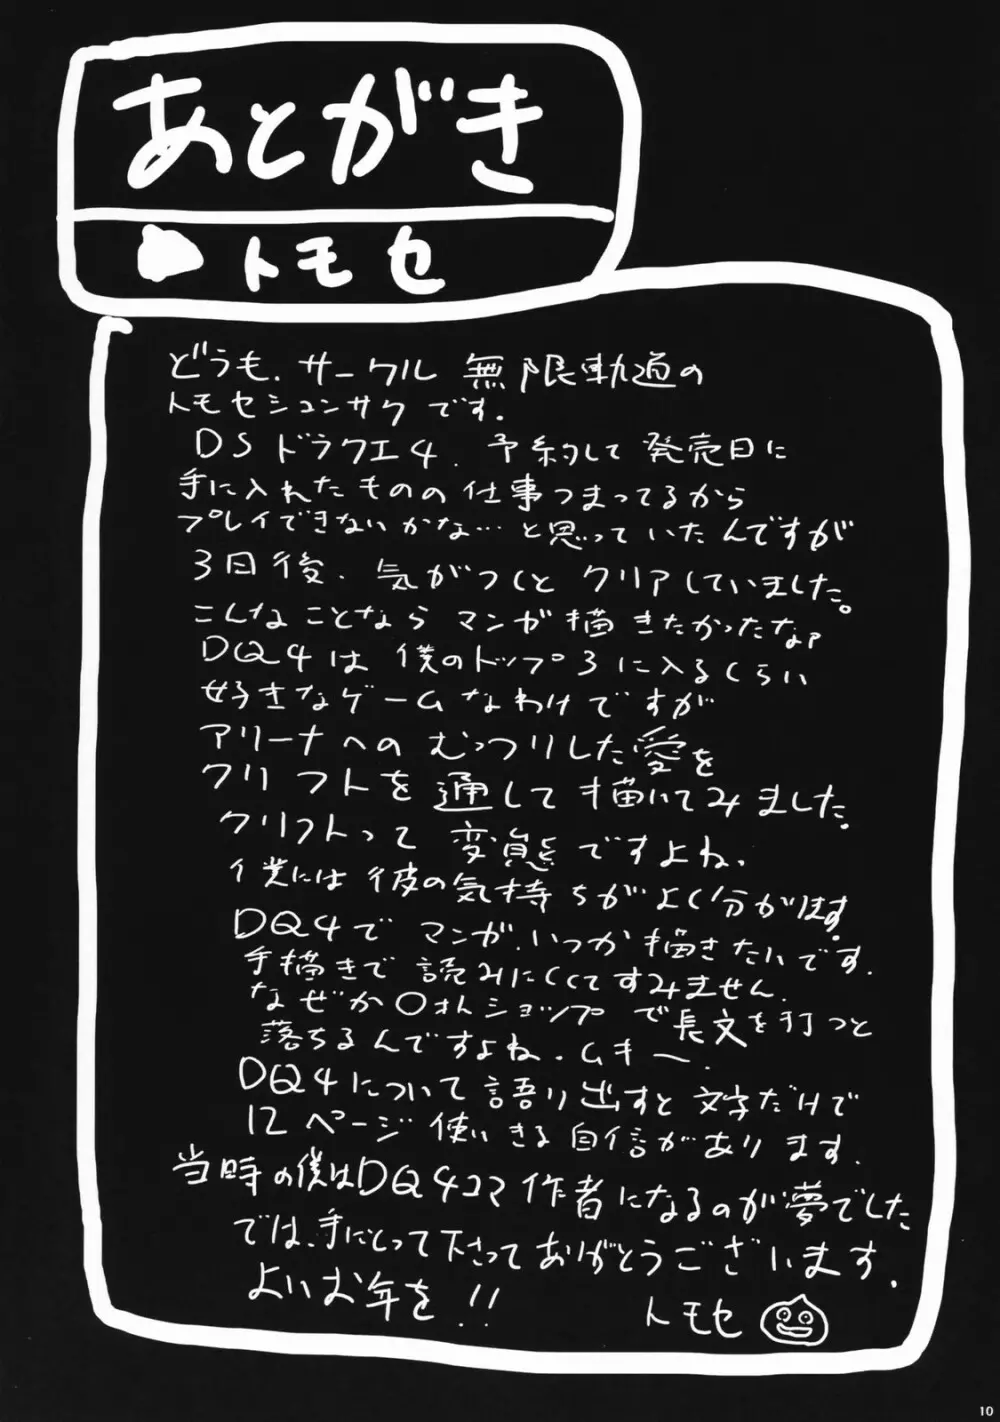 あとがき
トモセ
どうも、サークル 無限軌道の
トモセシュンサクです。
DSドラクエ4、予約して発売日に
手に入れたものの仕事つまってるから
プレイできないかな…と思っていたんですが
3日後、気がつくとクリアしていました。
こんなことならマンガ描きたかったなァ
DQ4は僕のトップ3に入るくらい
好きなゲームなわけですが
アリーナへのむっつりした愛を
クリフトを通して描いてみました。
クリフトって変態ですよね、
僕には彼の気持ちがよく分かります。
DQ4でマンガ、いつか描きたいです。
手描きで読みにくくてすみません。
なぜか〇ォトショップで長文を打つと
落ちるんですよね。ムキー
DQ4について語り出すと文字だけで
12ページ使いきる自信があります。
当時の僕はDQ4コマ作者になるのが夢でした
では、手にとって下さってありがとうございます。
よいお年を!!
トモセ
10